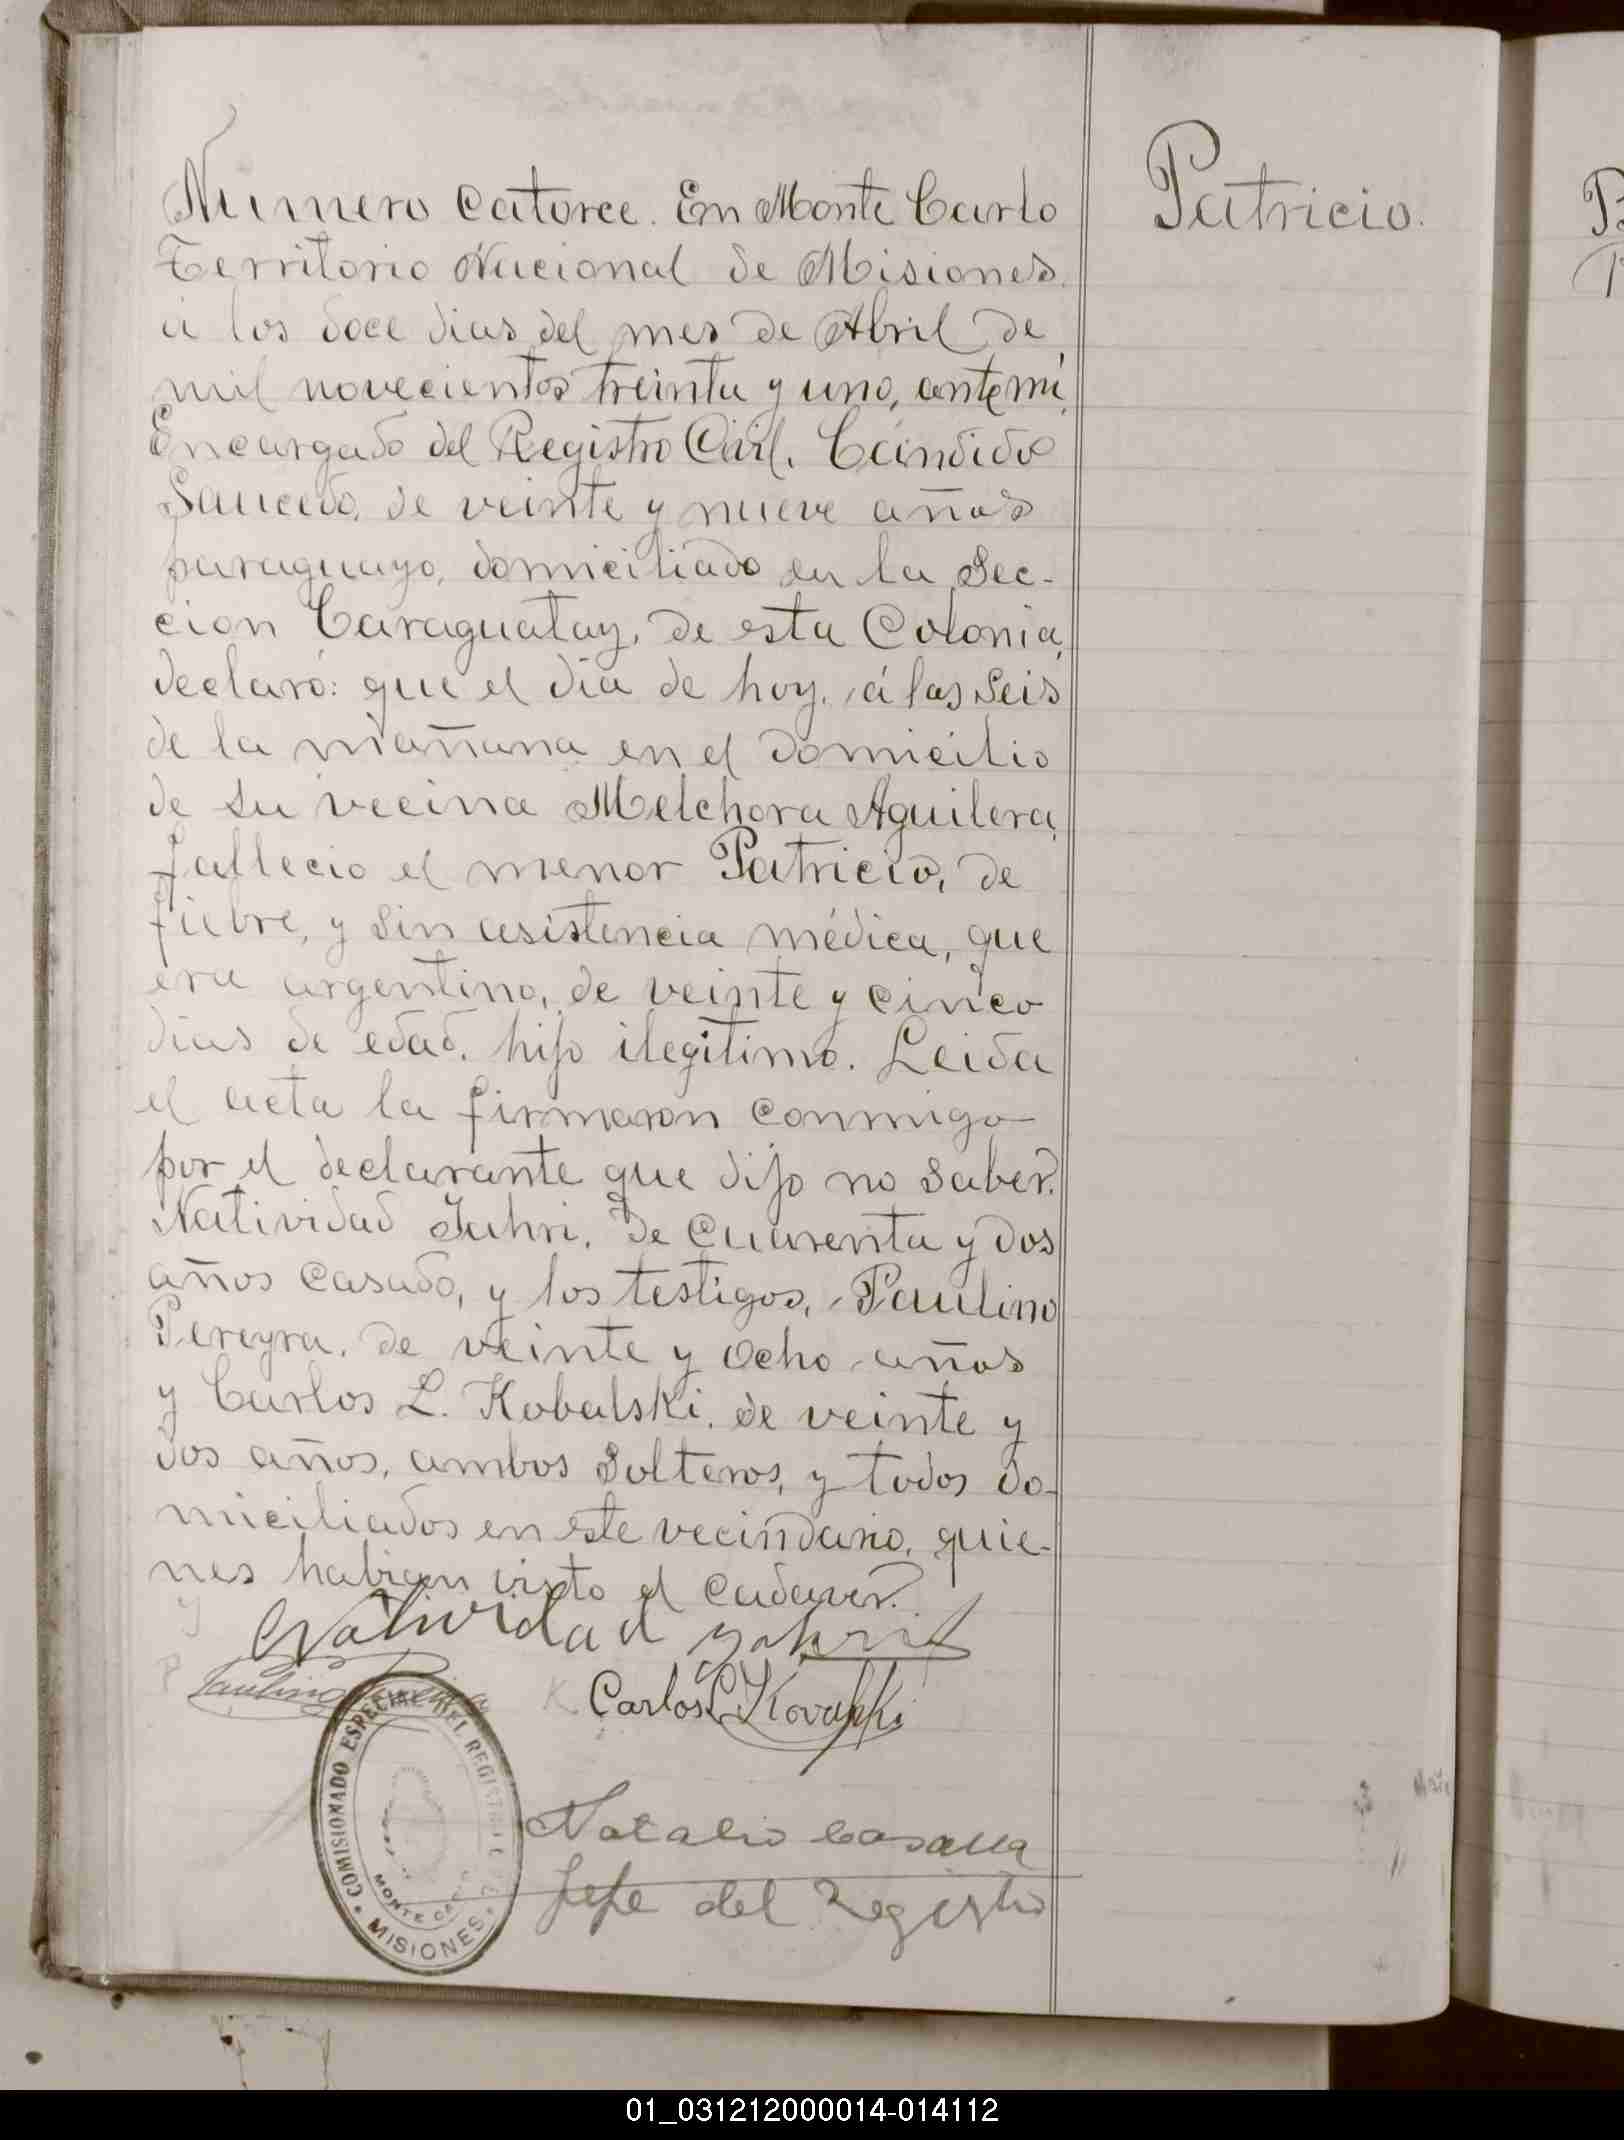 Numero catorce. En Monte Carlo
Territorio Nacional de Misiones
á los doce dias del mes de Abril de
mil novecientos treinta y uno, ante mí,
Encargado del Registro Civil, Cándido
Saucedo, de veinte y nueve años
paraguayo, domiciliado en la Sec-
cion Caraguatay, de esta Colonia,
declaró: que el día de hoy, á las seis
de la mañana en el domicilio
de su vecina Melchora Aguilera,
fallecio el menor Patricio, de
fiebre, y sin asistencia médica, que
era argentino, de veinte y cinco
dias de edad, hijo ilegítimo. Leida
el acta la firmaron conmigo
por el declarante que dijo no saber,
Natividad Juhri, de cuarenta y dos
años casado, y los testigos, Paulino
Pereyra, de veinte y ocho años
y Carlos L. Kobalski, de veinte y
dos años, ambos solteros, y todos do-
miciliados en este vecindario, quie-
nes habian visto el cadaver.
Natividad
Paulino
Carlos L. Kovalski
Natalio Casalla
Jefe del Registro
COMISIONADO ESPECIAL DEL REGISTRO CIVIL
MONTE CARLO
MISIONES
Patricio.
01_031212000014-014112